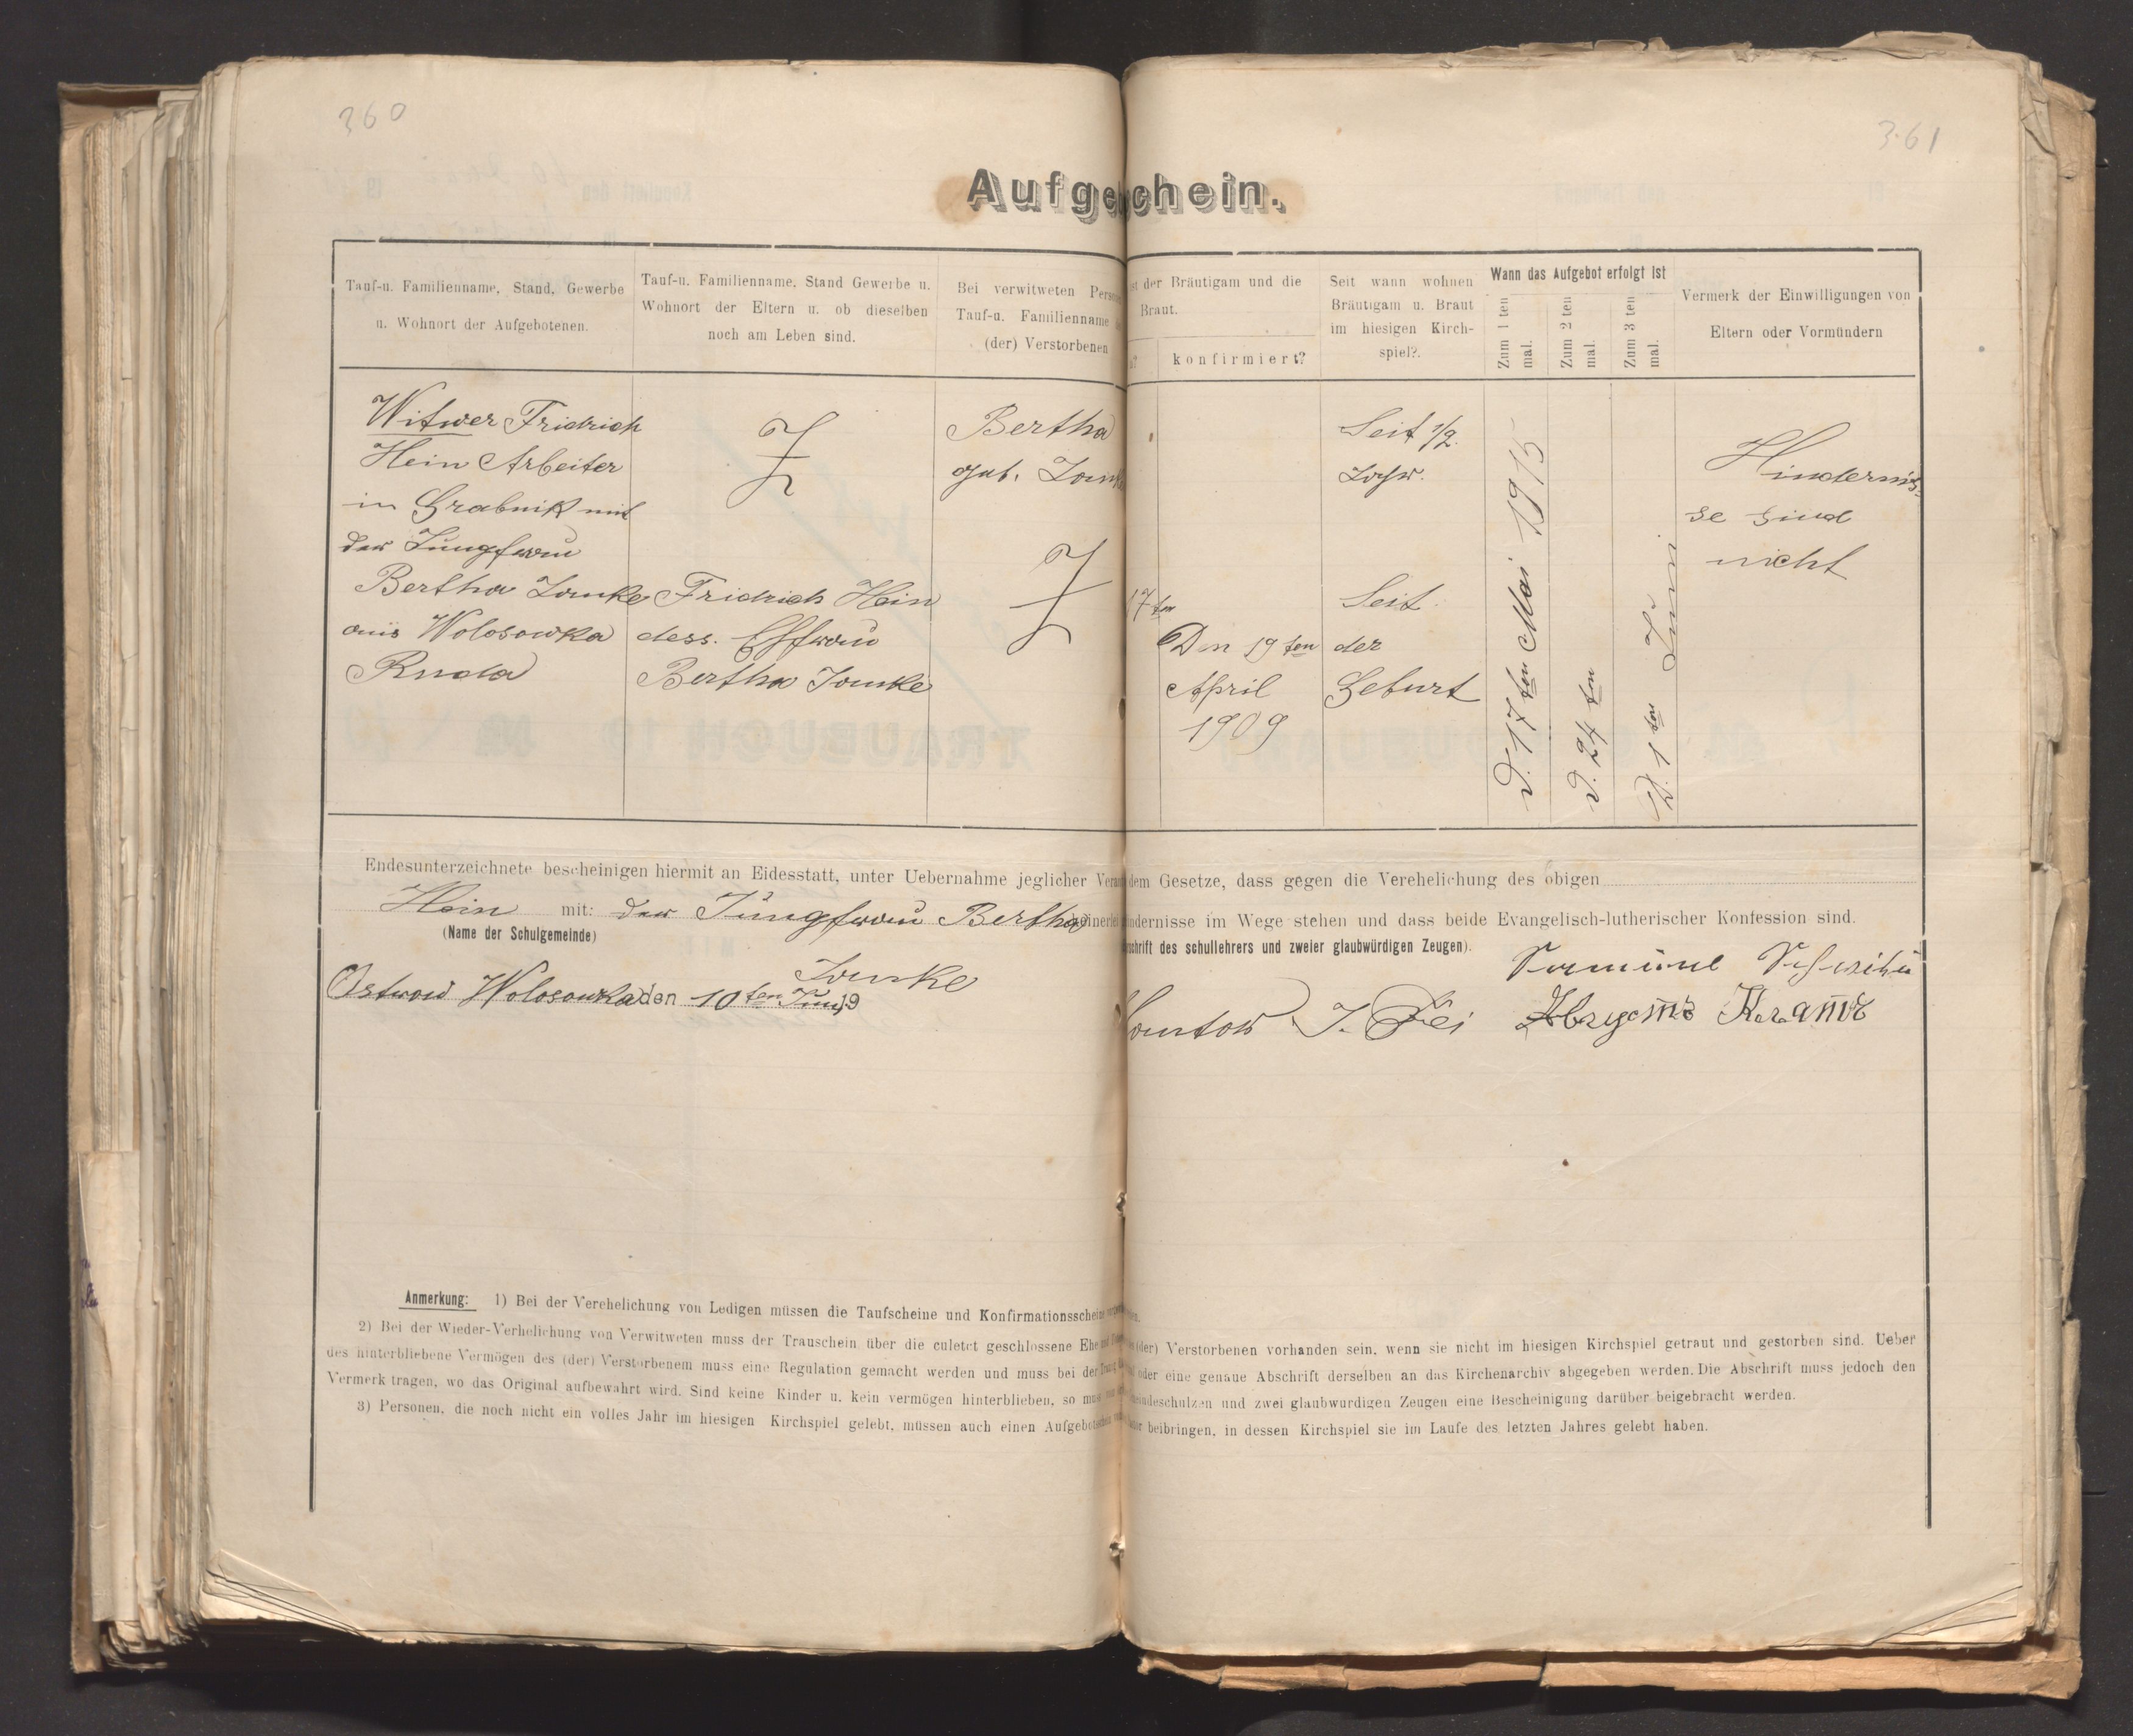 360
3.61
Aufge chein.
Tauf-u. Familienname, Stand, Gewerbe
u. Wohnort der Aufgebotenen.
Tauf-u. Familienname, Stand Gewerbe u.
Wohnort der Eltern u. ob dieselben
noch am Leben sind.
Bei verwitweten
Tauf-u. Familienname
(der) Verstorbenen
der Bräutigam und die
Braut.
konfirmiert?
Seit wann wohnen
Bräutigam u. Braut
im hiesigen Kirch-
spiel?.
Wann das Aufgebot erfolgt ist
Zum 1 ten
mal.
Zum 2 ten
mal.
Zum 3 ten
mal.
Vermerk der Einwilligungen von
Eltern oder Vormündern
Witwer Fridrich
Hein Arbeiter
in Grabnik mit
der Jungfrau
Bertha Janke
aus Wolosowka
Ruda
Fridrich Hein
dess. Ehfrau
Bertha Janke
Bertha
geb.
17 ten
Den 19 ten
April
1909
Seit 1/2
Seit
der
Geburt
D. 17 ten Mai 1915
D. 24 ten
D. 1 ten Juni
Hindernis-
se sind
nicht
Endesunterzeichnete bescheinigen hiermit an Eidesstatt, unter Uebernahme jeglicher
dem Gesetze, dass gegen die Verehelichung des obigen
Hein mit: der Jungfrau Bertha
ndernisse im Wege stehen und dass beide Evangelisch-lutherischer Konfession sind.
(Name der Schulgemeinde)
schrift des schullehrers und zweier glaubwürdigen Zeugen).
Janke
Ostrow Wolosowka den 10 ten Juni 19
J.
Anmerkung: 1) Bei der Verehelichung von Ledigen müssen die Taufscheine und Konfirmationsscheine
2) Bei der Wieder-Verhelichung von Verwitweten muss der Trauschein über die culetct geschlossene Ehe
(der) Verstorbenen vorhanden sein, wenn sie nicht im hiesigen Kirchspiel getraut und gestorben sind. Ueber
des hinterbliebene Vermögen des (der) Verstorbenem muss eine Regulation gemacht werden und muss bei der
oder eine genaue Abschrift derselben an das Kirchenarchiv abgegeben werden. Die Abschrift muss jedoch den
Vermerk tragen, wo das Original aufbewahrt wird. Sind keine Kinder u. kein vermögen hinterblieben, so
eindeschulzen und zwei glaubwurdigen Zeugen eine Bescheinigung darüber beigebracht werden.
3) Personen, die noch nicht ein volles Jahr im hiesigen Kirchspiel gelebt, müssen auch einen
beibringen, in dessen Kirchspiel sie im Laufe des letzten Jahres gelebt haben.